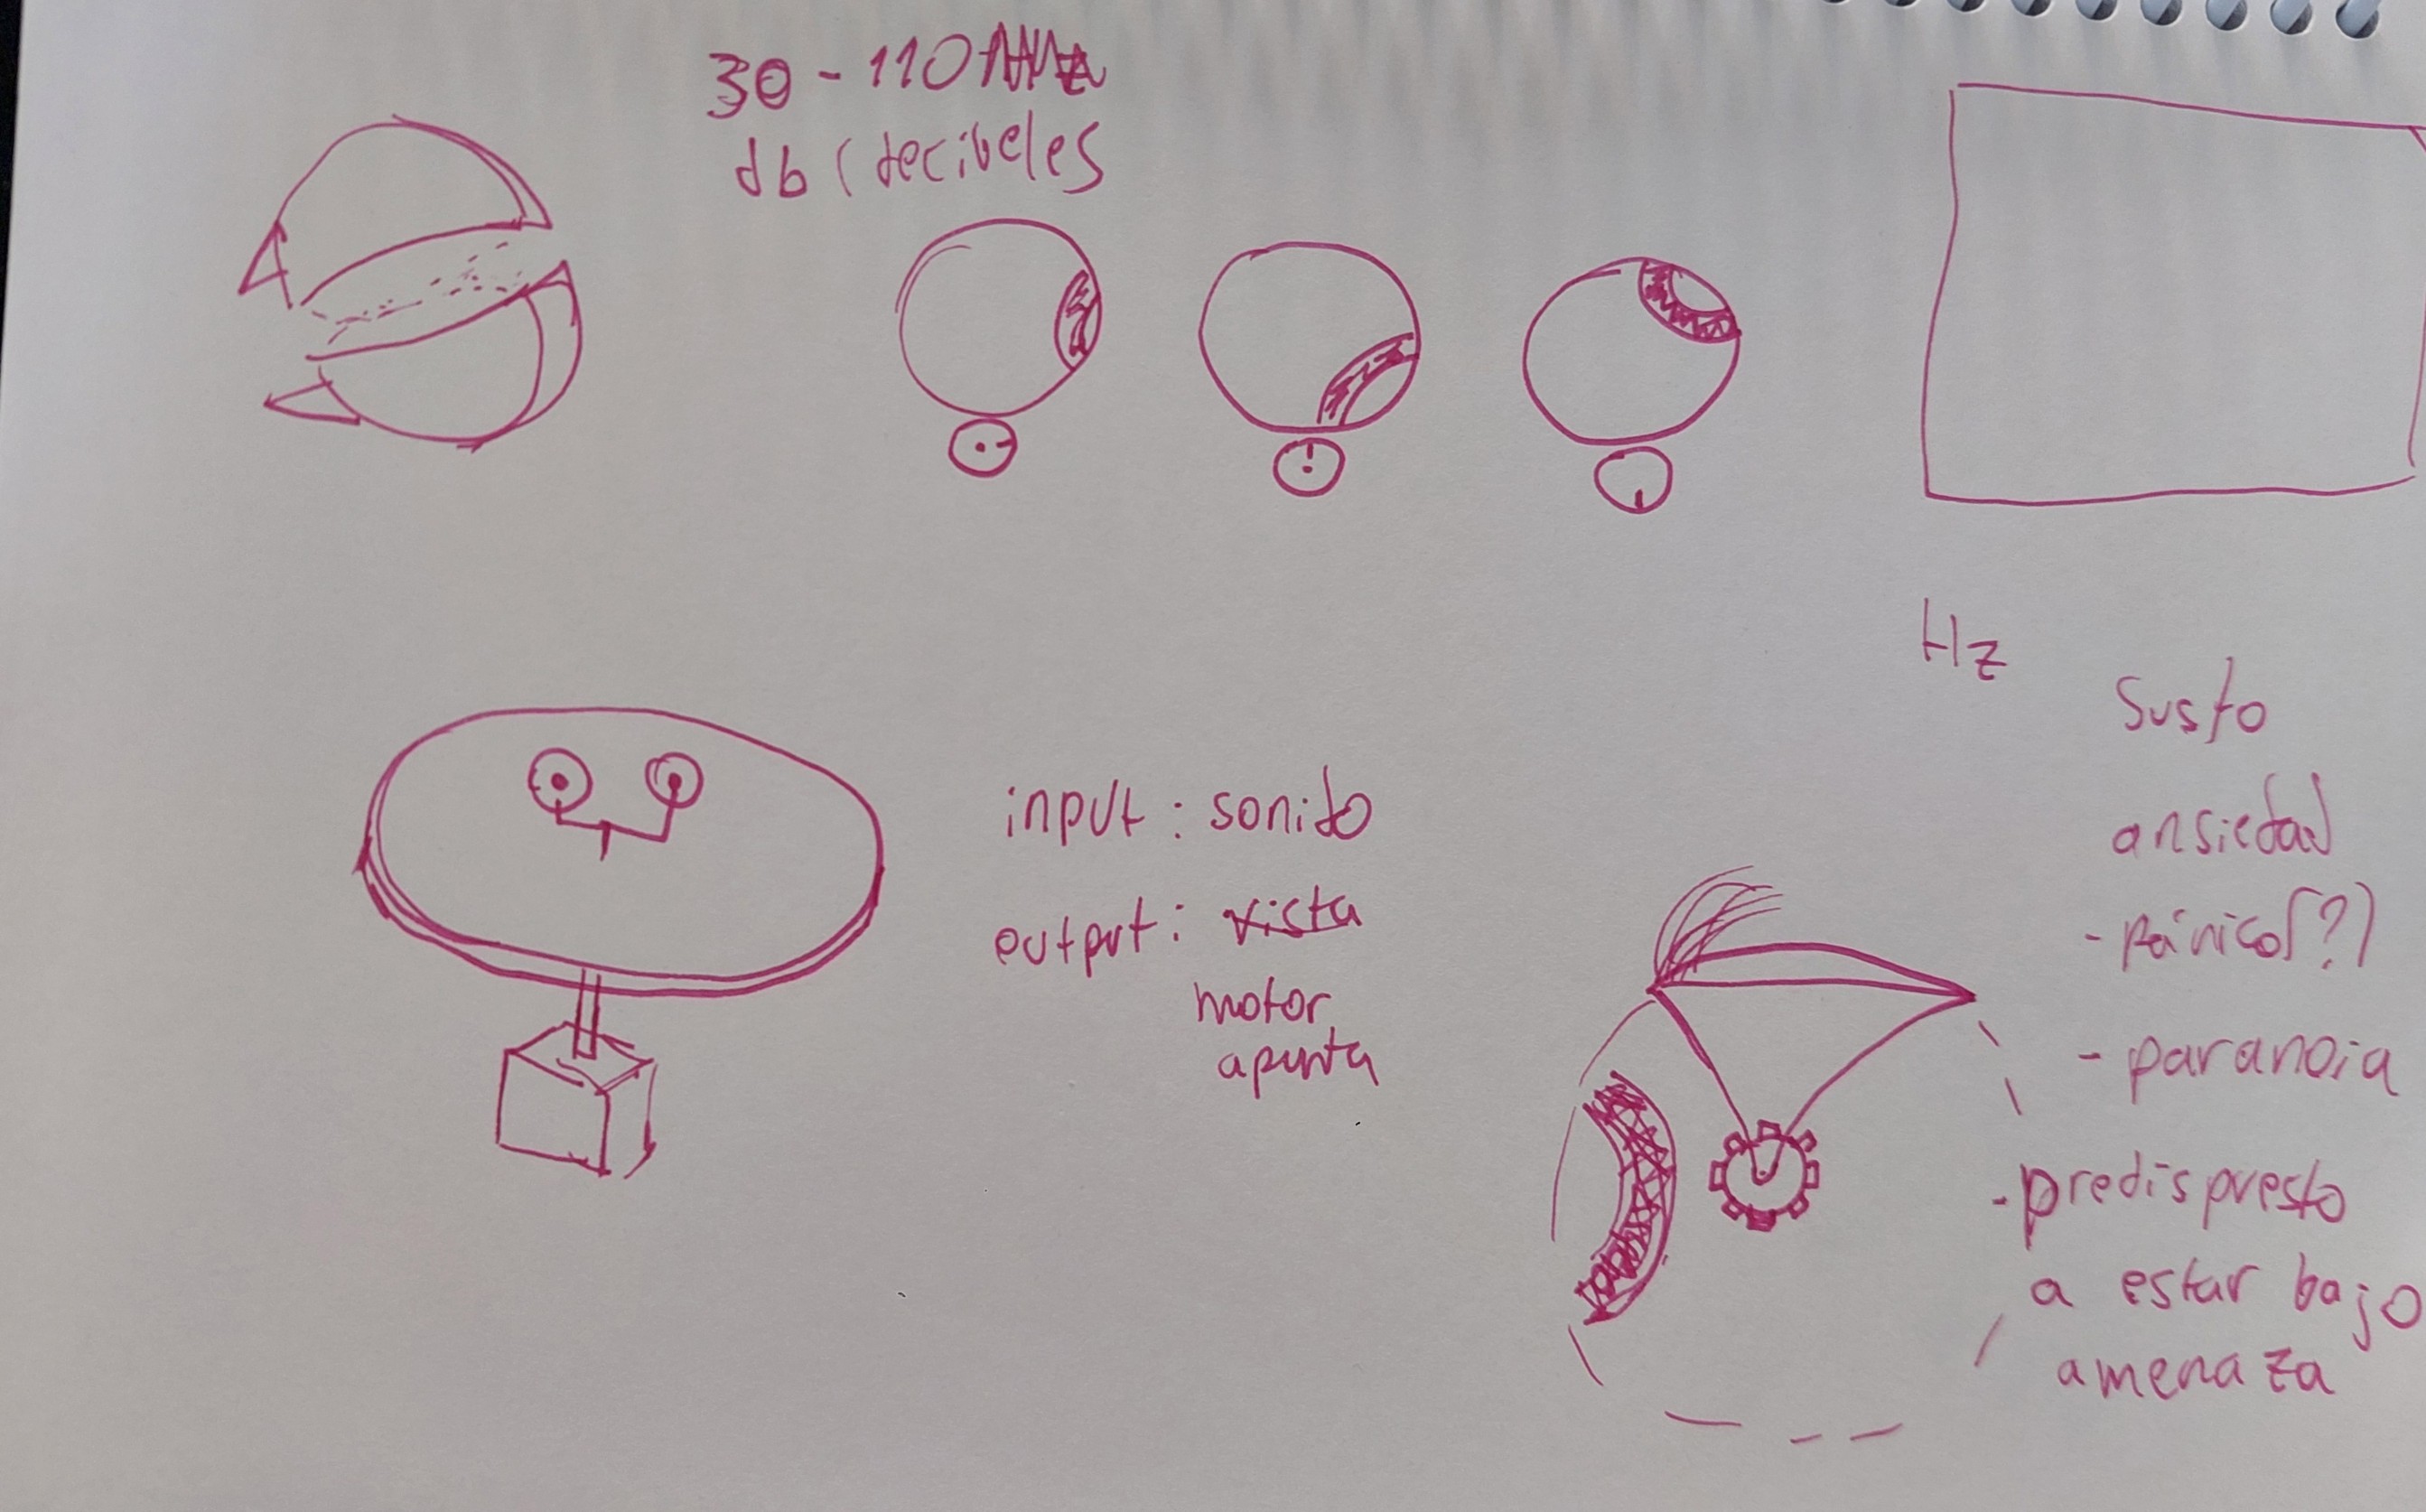 30 - 110
db (decibeles
Hz
input: sonido
output: vista
motor
apunta
Susto
ansiedad
- pánico(?)
- paranoia
- predispuesto
a estar bajo
amenaza